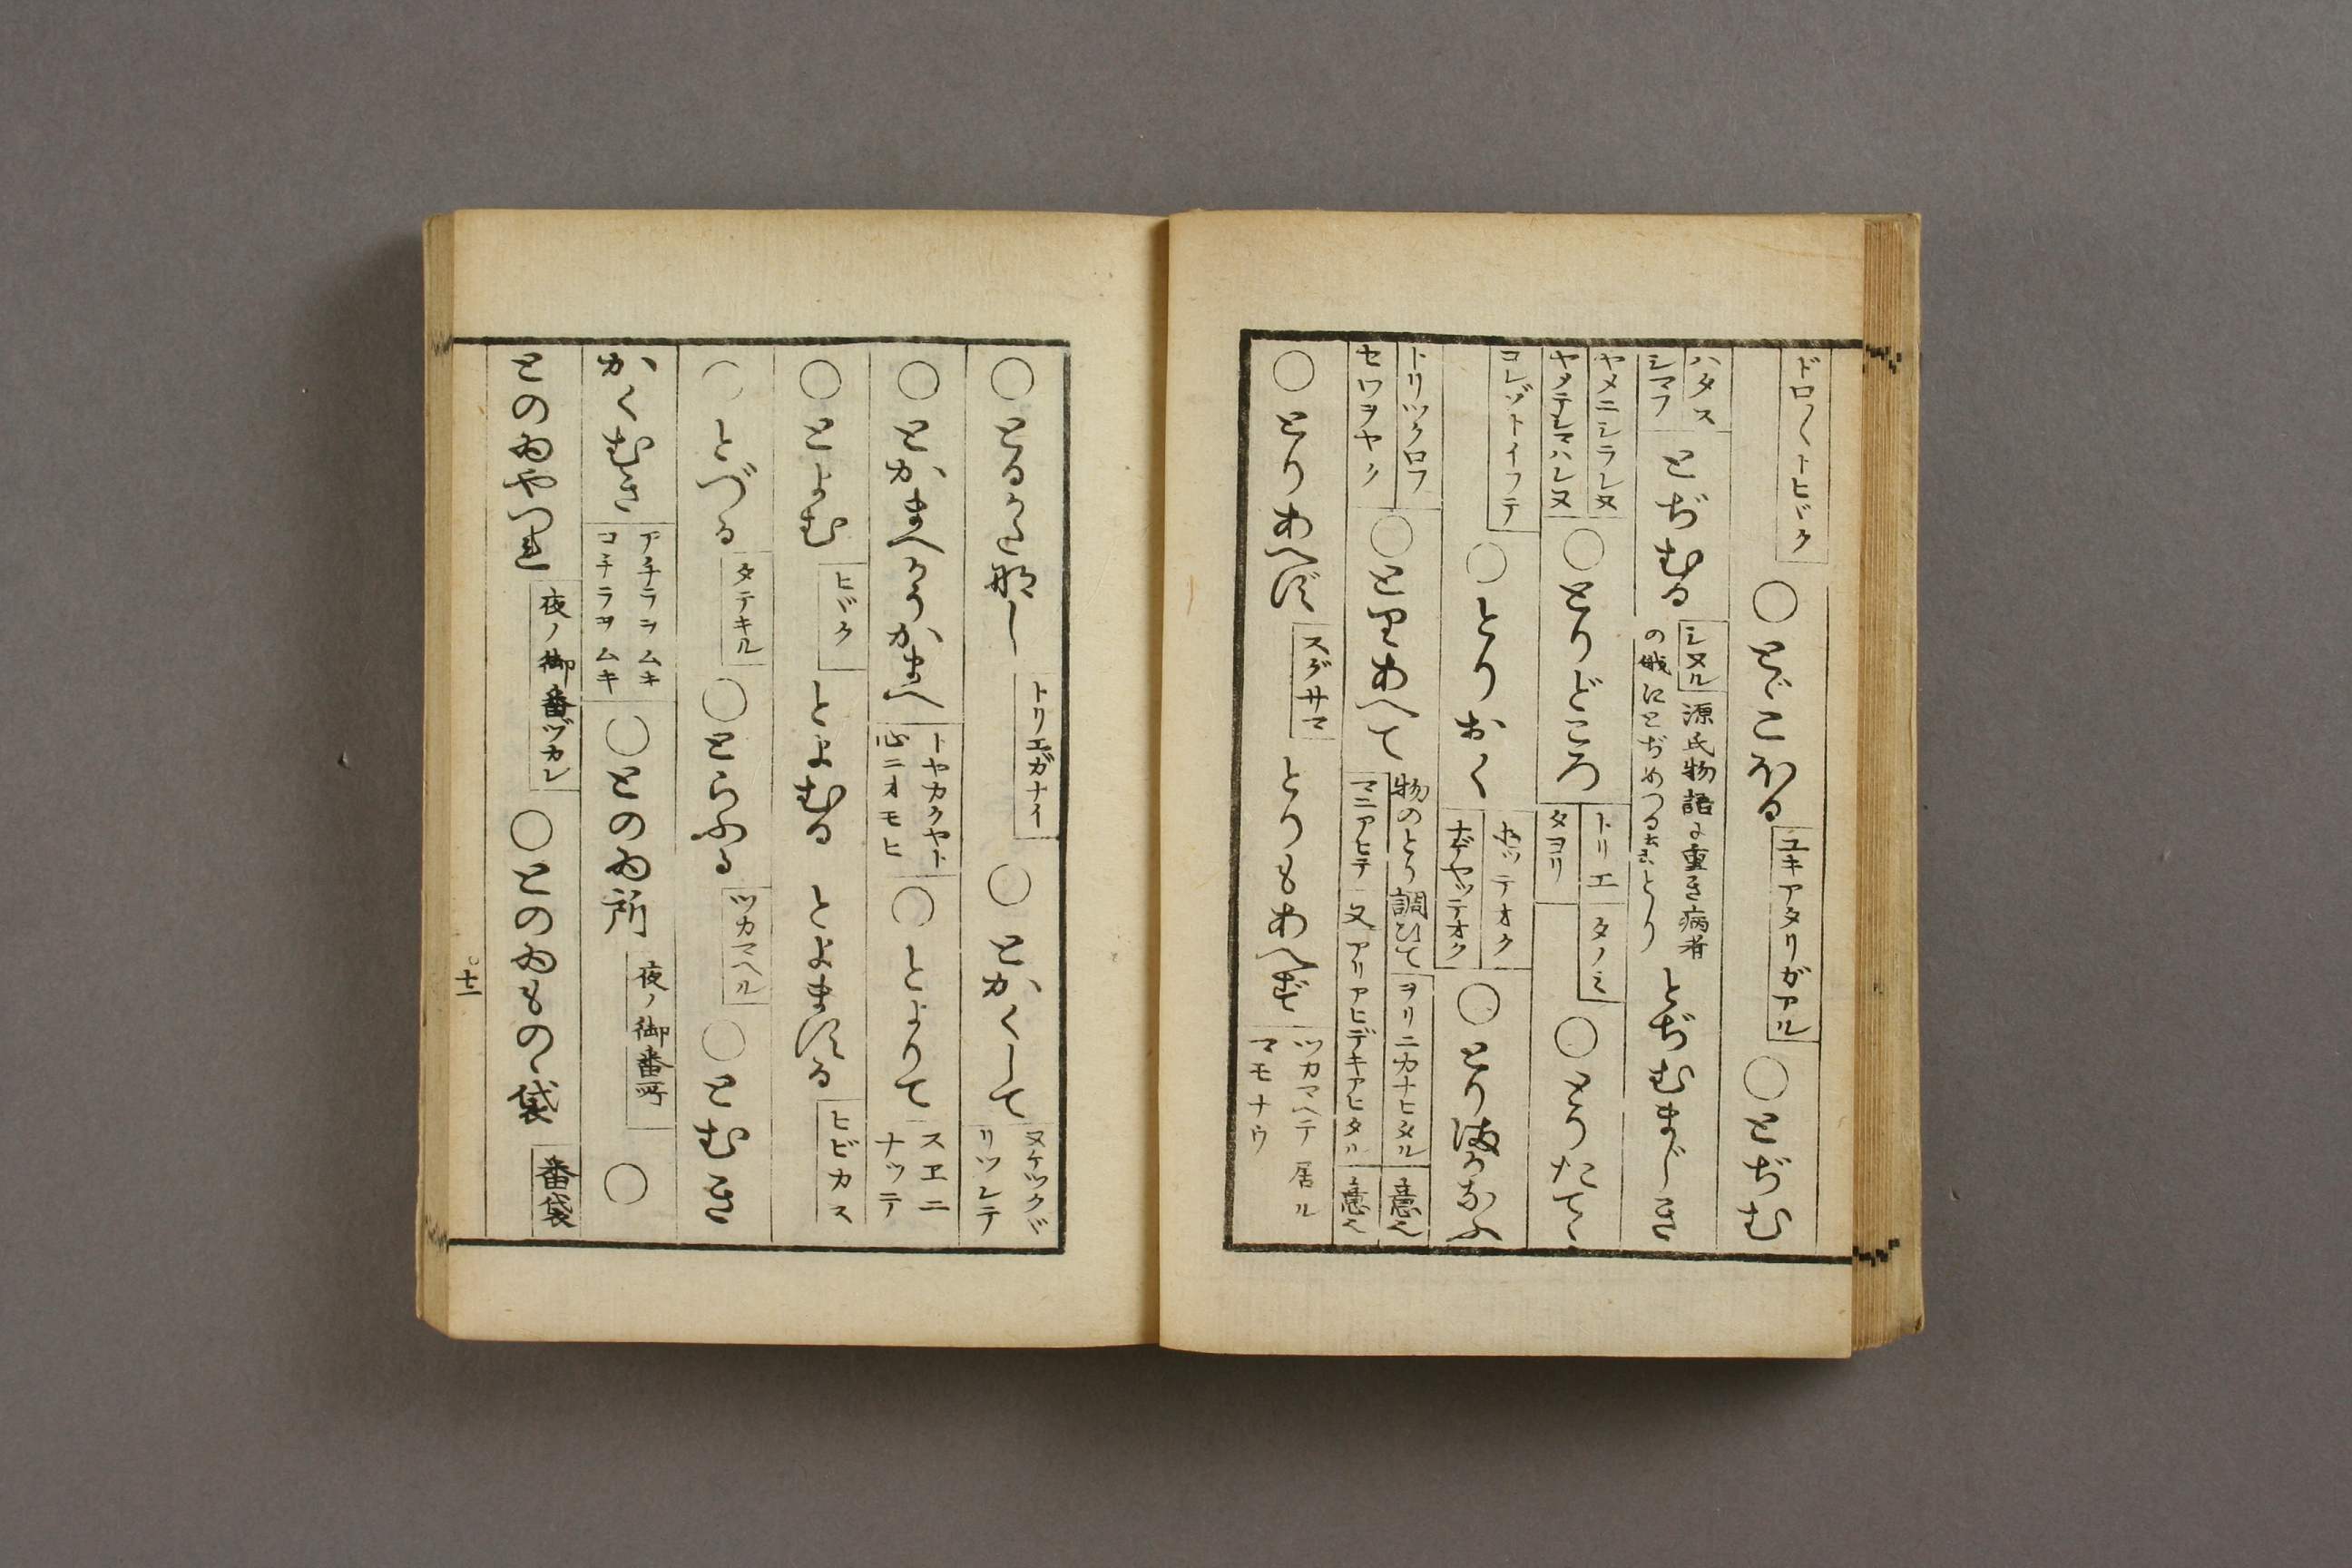 ドロ〳〵トヒヾク ○とゞこほる ユキアタリガアル ○とぢむ
ハタス シマフ とぢむる シヌル 源氏物語に重き病者の俄にとぢめつる とぢむまじき
ヤメニシラレヌ ヤメテシマハレヌ ○とりどころ トリエ タノミ タヨリ ○とりたてゝ
コレゾトイフテ ○とりおく ○とりまかなふ
トリツクロフ セワヲヤク ○とりあへて 物のとり調ひて ヲリニカナヒタル 意也 マニアヒテ 又 アリアヒデキアヒタル 意也
○とりあへず スグサマ とりもあへず ツカマヘテ居ル マモナウ
○とるかた那し トリエガナイ ○とかくして ヌケツクヾリツレテ
○とかまへかうかまへ トヤカクヤト 心ニオモヒ ○とよりて スヱニナツテ
○とよむ ヒヾク とよむる とよまする ヒビカス
○とづる タテキル ○とらふる ツカマヘル ○とむき
かくむき アチラヲムキ コチラヲムキ ○とのゐ所 夜ノ御番所 ○
とのゐやつれ 夜ノ御番ヅカレ ○とのゐものゝ袋 番袋
十二